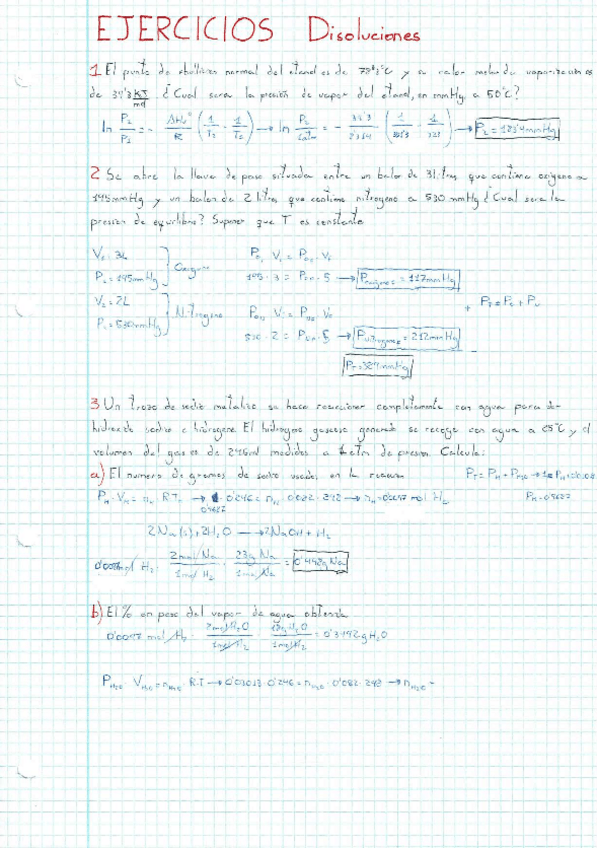 EJERCICIOS Disoluciones
1 El punto de ebullición normal del etanol es de 78'3°C y su calor molar de vaporización es
de 39'3 KJ/mol ¿Cual sera la presión de vapor del etanol, en mmHg a 50°C?
ln P₂/P₁ = - ΔHv°/R (1/T₂ - 1/T₁) → ln P₂/1atm = -
2 Se abre la llave de paso situada entre un balon de 3 litros que contiene oxigeno a
195mmHg y un balon de 2 litros que contiene nitrogeno a 530 mmHg ¿Cual sera la
presion de equilibrio? Suponer que T es constante
V₁ = 3L
P₁ = 195mmHg
Oxigeno
195 · 3 = · 5 → = 117mmHg
V₂ = 2L
P₁ = 530mmHg
Nitrogeno
530 · 2 = · 5 → = 212mmHg
+
P_T = 329mmHg
3 Un trozo de sodio metalico se hace reaccionar completamente con agua para dar
hidroxido sodico e hidrogeno El hidrogeno gaseoso generado se recoge con agua a 25°C y el
volumen del gas es de 246ml medidos a 1atm de presion. Calcula:
a) El numero de gramos de sodio usados en la reaccion
→ 0'246 = n_H · 0'082 · 298 → n_H = 0'0097 mol H₂
2Na (s) + 2H₂O → 2NaOH + H₂
0'0097mol H₂ · 2mol Na/1mol H₂ · 23g Na/1mol Na = 0'442g Na
b) El % en peso del vapor de agua obtenido
0'0097 mol H₂ · 2mol H₂O/1mol H₂ · 18g H₂O/1mol H₂ = 0'3492g H₂O
P_H₂O · V_H₂O = n_H₂O · R·T → 0'03013 · 0'246 = n_H₂O · 0'082 · 298 → n_H₂O =